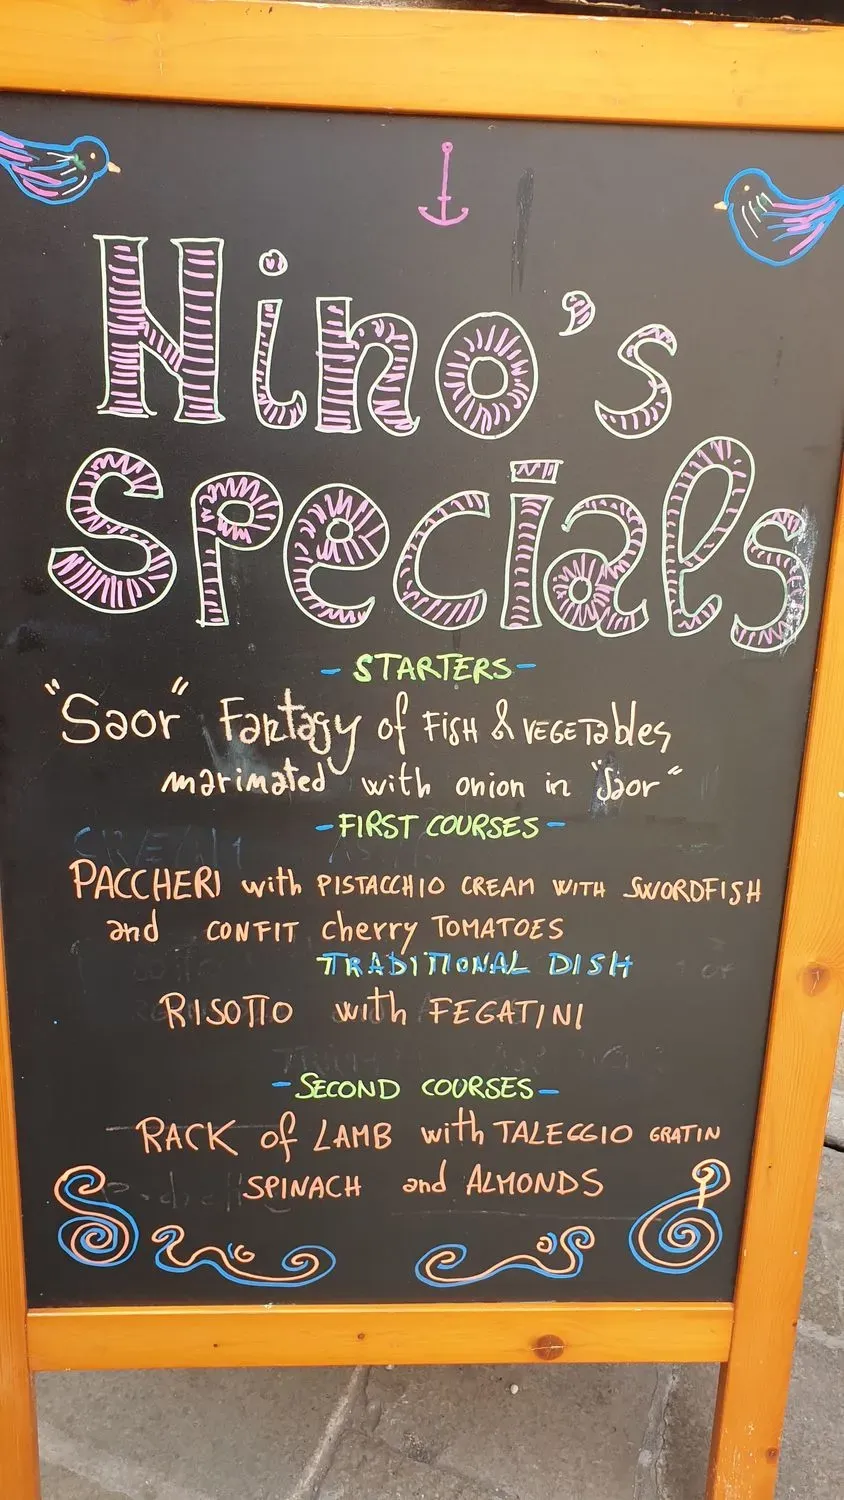 Nino's
Specials
- STARTERS -
"Saor" Fantasy of FISH & VEGETables
marinated with onion in "Saor"
- FIRST COURSES -
PACCHERI with PISTACCHIO CREAM WITH SWORDFISH
and CONFIT cherry TOMATOES
TRADITIONAL DISH
RISOTTO with FEGATINI
- SECOND COURSES -
RACK of LAMB with TALEGGIO GRATIN
SPINACH and ALMONDS